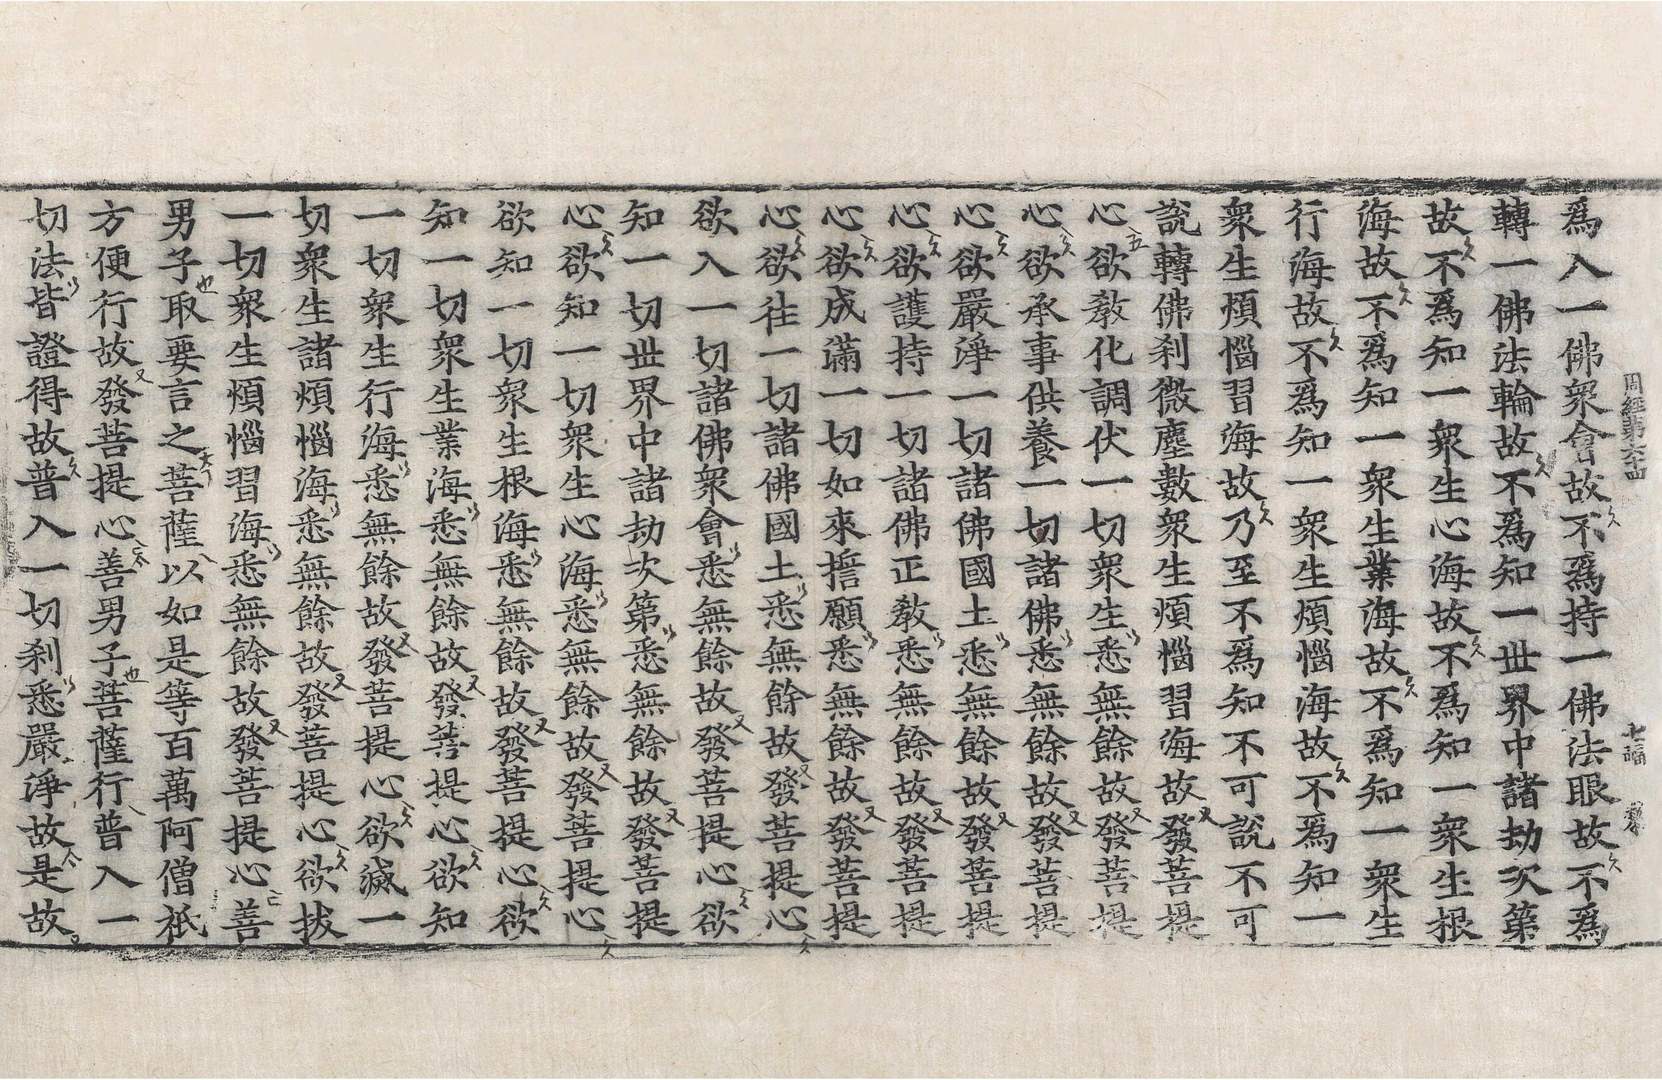 周經第六十四 七福
爲入一佛衆會故不爲持一佛法眼故不爲
轉一佛法輪故不爲知一世界中諸劫次第
故不爲知一衆生心海故不爲知一衆生根
海故不爲知一衆生業海故不爲知一衆生
行海故不爲知一衆生煩惱海故不爲知一
衆生煩惱習海故乃至不爲知不可說不可
說轉佛刹微塵數衆生煩惱習海故發菩提
心欲教化調伏一切衆生悉無餘故發菩提
心欲承事供養一切諸佛悉無餘故發菩提
心欲嚴淨一切諸佛國土悉無餘故發菩提
心欲護持一切諸佛正教悉無餘故發菩提
心欲成滿一切如來擔願悉無餘故發菩提
心欲往一切諸佛國土悉無餘故發菩提心
欲入一切諸佛衆會悉無餘故發菩提心欲
知一切世界中諸劫次第悉無餘故發菩提
心欲知一切衆生心海悉無餘故發菩提心
欲知一切衆生根海悉無餘故發菩提心欲
知一切衆生業海悉無餘故發菩提心欲知
一切衆生行海悉無餘故發菩提心欲滅一
切衆生諸煩惱海悉無餘故發菩提心欲拔
一切衆生煩惱習海悉無餘故發菩提心善
男子取要言之菩薩以如是等百萬阿僧祇
方便行故發菩提心善男子菩薩行普入一
切法皆證得故普入一切刹悉嚴淨故是故